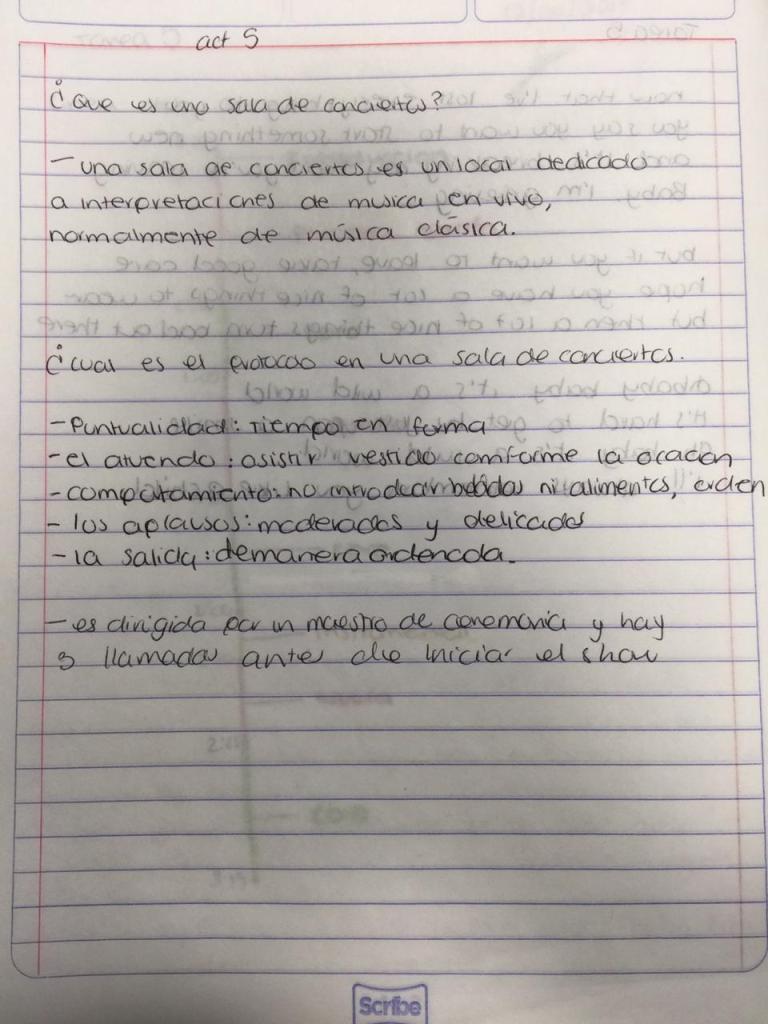 act 5
¿Que es una sala de conciertos?
- una sala de conciertos es un local dedicado
a interpretaciones de musica en vivo,
normalmente de música clásica.
¿cual es el protocolo en una sala de conciertos.
- Puntualidad: Tiempo en forma
- el atuendo: asistir vestido comforme la ocacion
- comportamiento: no introducir bebidas ni alimentos, orden
- los aplausos: moderados y delicados
- la salida: de manera ordenada.
- es dirigida por un maestro de ceremonia y hay
3 llamadas antes de iniciar el show
Scribe